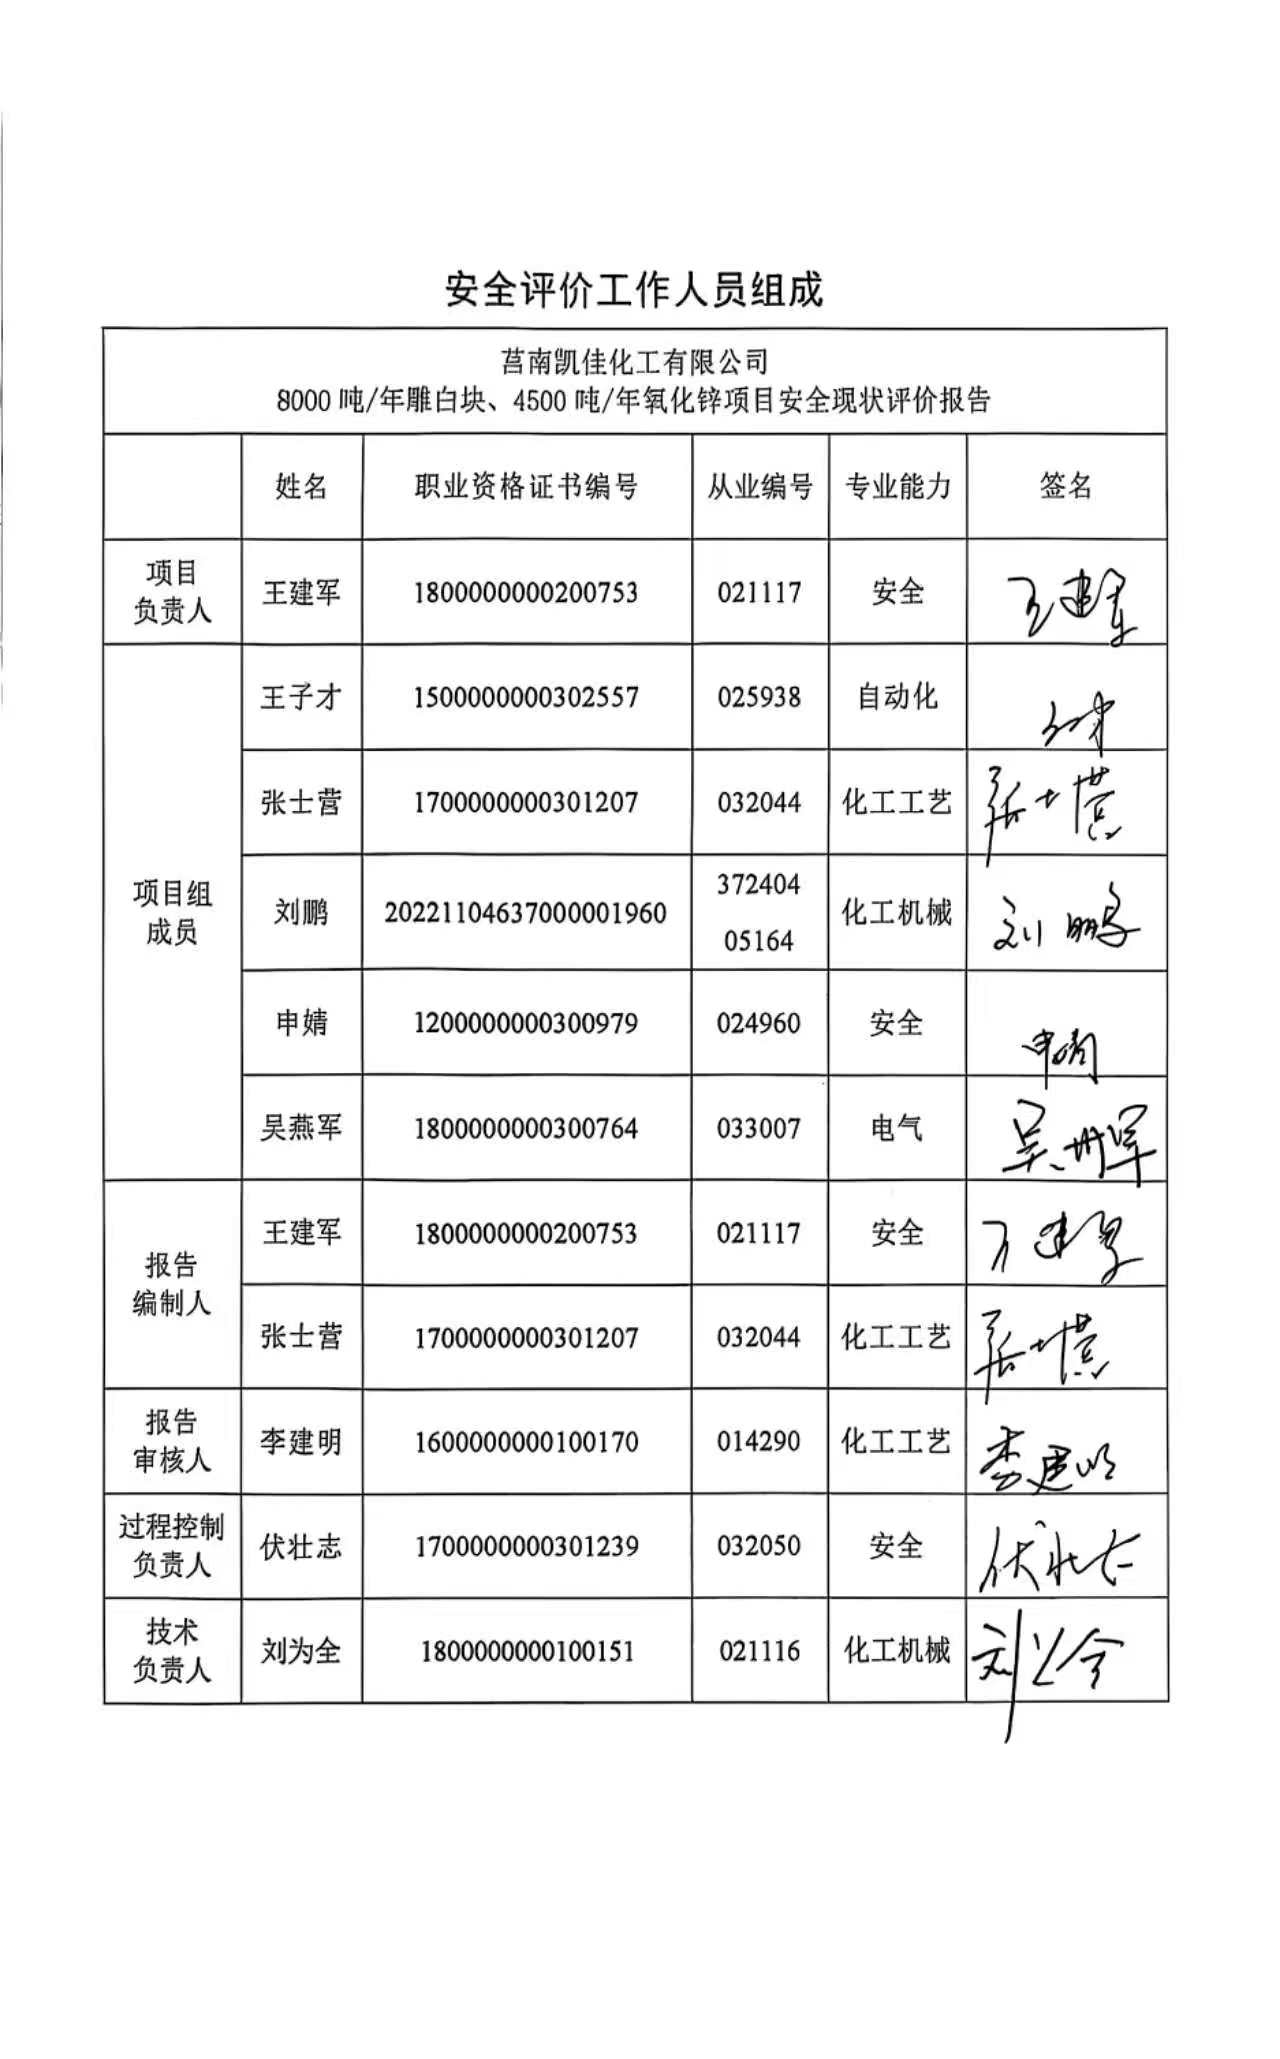 安全评价工作人员组成
莒南凯佳化工有限公司
8000 吨/年雕白块、4500 吨/年氧化锌项目安全现状评价报告
姓名 职业资格证书编号 从业编号 专业能力 签名
项目
负责人
王建军 1800000000200753 021117 安全 王建军
项目组
成员
王子才 1500000000302557 025938 自动化
张士营 1700000000301207 032044 化工工艺 张士营
刘鹏 20221104637000001960 372404
05164
化工机械 刘鹏
申婧 1200000000300979 024960 安全 申婧
吴燕军 1800000000300764 033007 电气 吴燕军
报告
编制人
王建军 1800000000200753 021117 安全 王建军
张士营 1700000000301207 032044 化工工艺 张士营
报告
审核人
李建明 1600000000100170 014290 化工工艺 李建明
过程控制
负责人
伏壮志 1700000000301239 032050 安全 伏壮志
技术
负责人
刘为全 1800000000100151 021116 化工机械 刘为全